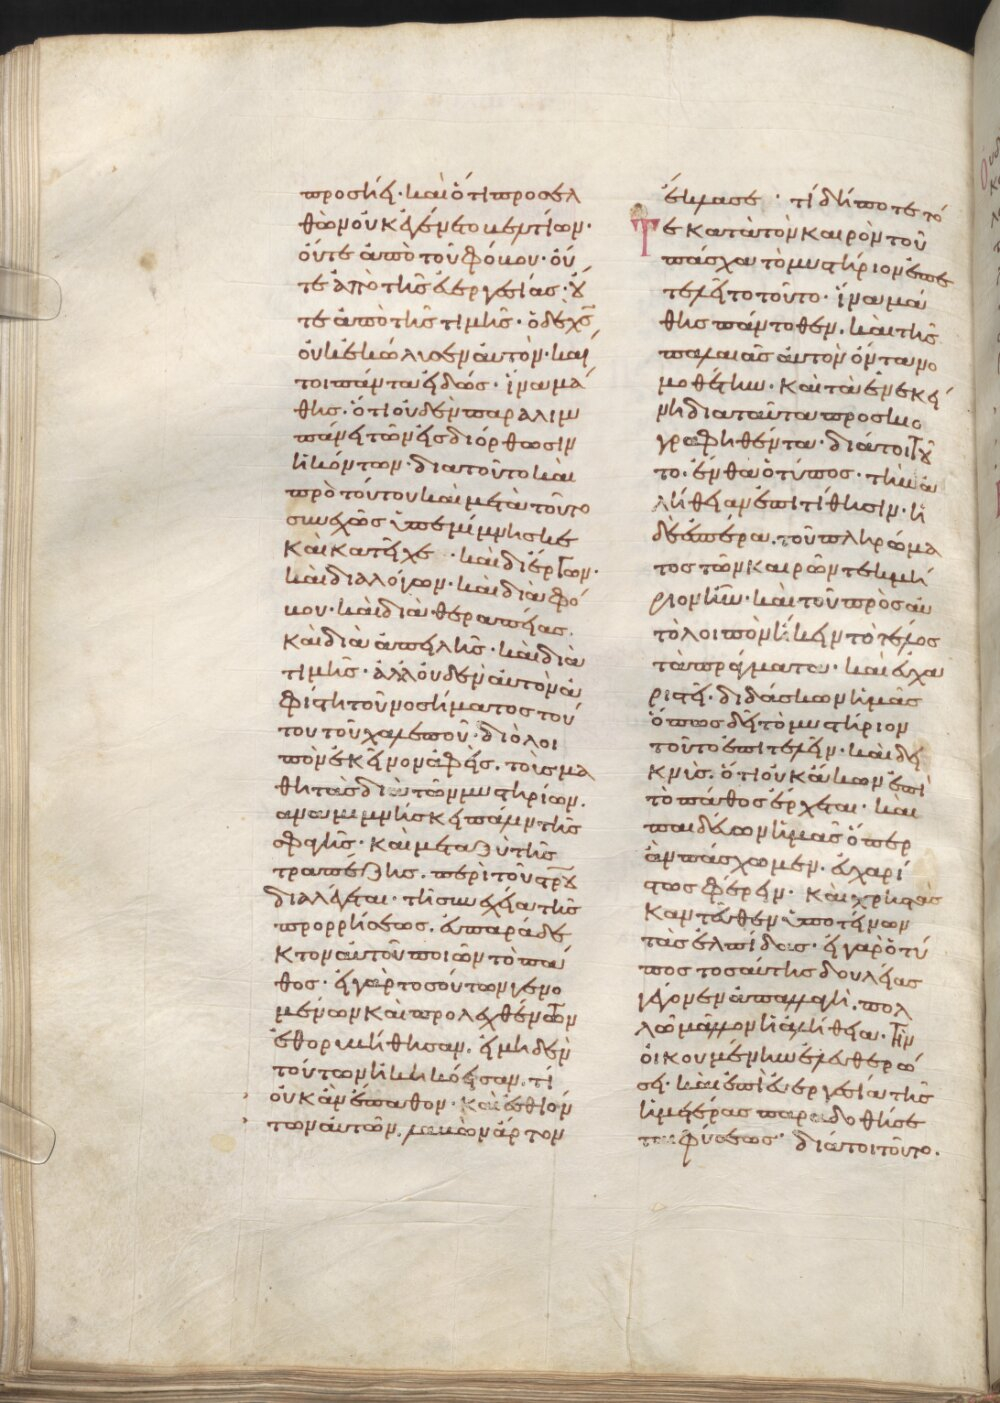 προσίῃ· καὶ ὅτι προσελ
θὼν οὐκ ἐγένετο βελτίων·
οὔτε ἀπὸ τοῦ φόβου· οὔ
τε ἀπὸ τῆς εὐεργεσίας· οὔ
τε ἀπὸ τῆς τιμῆς· ὁ δὲ χς̅
οὐκ ἐκώλυσεν αὐτόν· καί
τοι πάντα εἰδώς· ἵνα μά
θῃς· ὅτι οὐδὲν παραλιμ
πάνει τῶν εἰς διόρθωσιν
ἡκόντων· διὰ τοῦτο καὶ
πρὸ τούτου καὶ μετὰ τοῦτο
συνεχῶς ὑπεμίμνησκε
καὶ κατεῖχε· καὶ δι' ἔργων·
καὶ διαλόγων· καὶ διὰ φό
βου· καὶ διὰ θεραπείας·
καὶ διὰ ἀπειλῆς· καὶ διὰ
τιμῆς· ἀλλ' οὐδὲν αὐτὸν ἀ
φίστη τοῦ νοσήματος τού
του τοῦ χαλεποῦ· διὸ λοι
πὸν ἐκεῖνον ἀφεὶς· τοὺς μα
θητὰς διὰ τῶν μυστηρίων·
ἀναμιμνήσκει πάλιν τῆς
σφαγῆς· καὶ μεταξὺ τῆς
τραπέζης· περὶ τοῦ σταυροῦ
διαλέγεται· τῇ συνεχείᾳ τῆς
προρρήσεως· εὐπαράδε
κτον αὐτοῦ ποιῶν τὸ πά
θος· εἰ γὰρ τοσούτων γενο
μένων καὶ προλεχθέντων
ἐθορυβήθησαν· εἰ μηδὲν
τούτων ἠκηκόεισαν· τί
οὐκ ἂν ἔπαθον· καὶ ἐσθιόν
των αὐτῶν, λαβὼν ἄρτον
ἔκλασε· τί δήποτε τό
τε κατὰ τὸν καιρὸν τοῦ
πάσχα τὸ μυστήριον ἐπε
τελεῖτο τοῦτο· ἵνα μά
θῃς πάντοθεν· καὶ τῆς
παλαιᾶς αὐτὸν ὄντα νο
μοθέτην· καὶ τὰ ἐν ἐκεί
νῃ διὰ ταῦτα προσκιο
γραφηθέντα· διά τοι τοῦ
το· ἔνθα ὁ τύπος· τὴν ἀ
λήθειαν ἐπιτίθησιν· ἡ
δὲ ἑσπέρα· τοῦ πληρώμα
τος τῶν καιρῶν τεκμή
ριον ἦν· καὶ τοῦ πρὸς αὐ
τὸ λοιπὸν ἥκειν τὸ τέλος
τὰ πράγματα· καὶ εὐχα
ριστεῖ· διδάσκων ἡμᾶς
ὅπως δεῖ τὸ μυστήριον
τοῦτο ἐπιτελεῖν· καὶ δει
κνὺς· ὅτι οὐκ ἄκων ἐπὶ
τὸ πάθος ἔρχεται· καὶ
παιδεύων ἡμᾶς ὅπερ
ἂν πάσχωμεν· εὐχαρί
στως φέρειν· καὶ χρηστὰς
καντεῦθεν ὑποτείνων
τὰς ἐλπίδας· εἰ γὰρ ὁ τύ
πος τοσαύτης δουλείας
γέγονεν ἀπαλλαγὴ· πολ
λῷ μᾶλλον ἡ ἀλήθεια· τὴν
οἰκουμένην ἐλευθερώ
σει· καὶ ἐπὶ εὐεργεσίᾳ τῆς
ἡμετέρας παραδοθήσε
ται φύσεως· διά τοι τοῦτο·